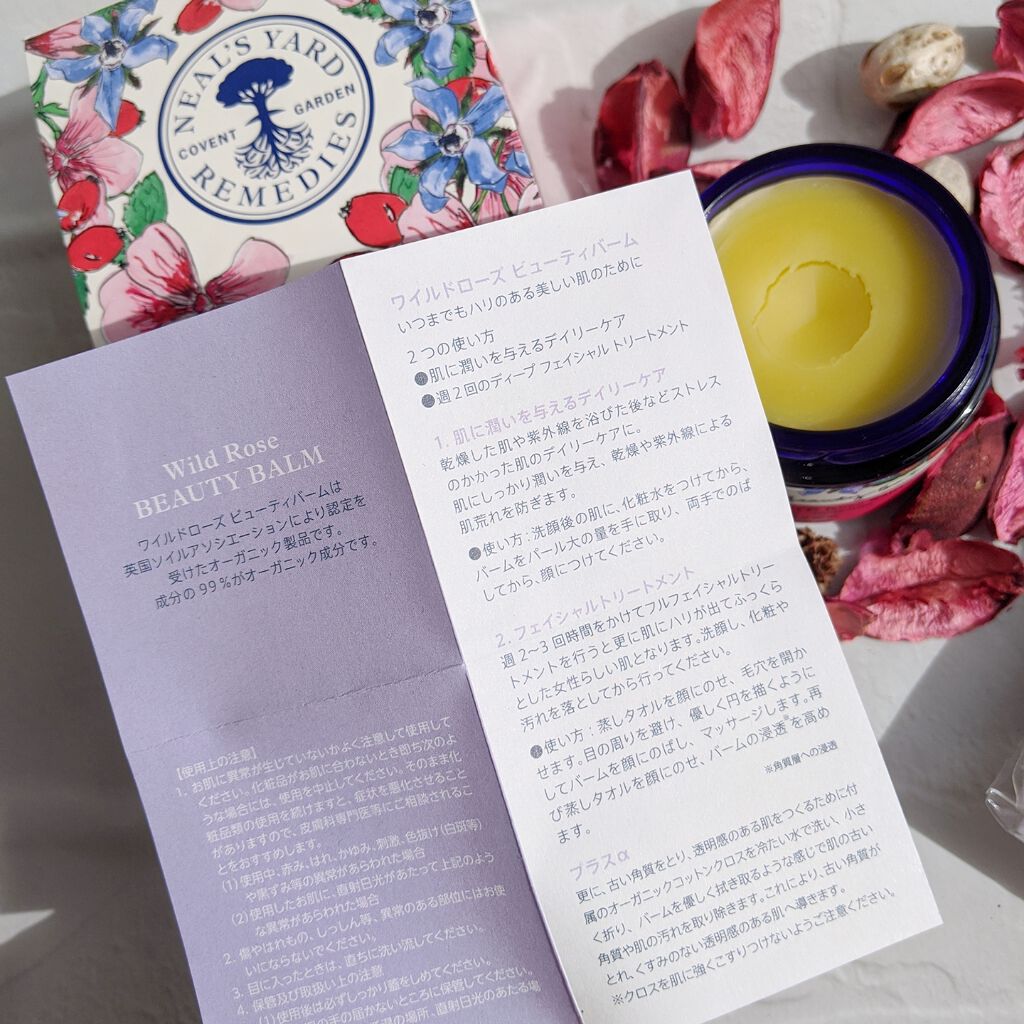 NEAL'S YARD
COVENT GARDEN
REMEDIES
Wild Rose
BEAUTY BALM
ワイルドローズ ビューティバームは
英国ソイルアソシエーションにより認定を
受けたオーガニック製品です。
成分の99%がオーガニック成分です。
【使用上の注意】
1. お肌に異常が生じていないかよく注意して使用して
ください。化粧品がお肌に合わないとき即ち次のよ
うな場合には、使用を中止してください。そのまま化
粧品類の使用を続けますと、症状を悪化させること
がありますので、皮膚科専門医等にご相談されるこ
とをおすすめします。
(1)使用中、赤み、はれ、かゆみ、刺激、色抜け(白斑等)
や黒ずみ等の異常があらわれた場合
(2)使用したお肌に、直射日光があたって上記のよう
な異常があらわれた場合
2. 傷やはれもの、しっしん等、異常のある部位にはお使
いにならないでください。
3. 目に入ったときは、直ちに洗い流してください。
4. 保管及び取扱い上の注意
(1)使用後は必ずしっかり蓋をしめてください。
の手の届かないところに保管してください。
の場所、直射日光のあたる場
ワイルドローズ ビューティバーム
いつまでもハリのある美しい肌のために
2つの使い方
●肌に潤いを与えるデイリーケア
●週2回のディープ フェイシャル トリートメント
1. 肌に潤いを与えるデイリーケア
乾燥した肌や紫外線を浴びた後などストレス
のかかった肌のデイリーケアに。
肌にしっかり潤いを与え、乾燥や紫外線による
肌荒れを防ぎます。
●使い方:洗顔後の肌に、化粧水をつけてから、
バームをパール大の量を手に取り、両手でのば
してから、顔につけてください。
2. フェイシャルトリートメント
週2~3回時間をかけてフルフェイシャルトリー
トメントを行うと更に肌にハリが出てふっくら
とした女性らしい肌となります。洗顔し、化粧や
汚れを落としてから行ってください。
●使い方:蒸しタオルを顔にのせ、毛穴を開か
せます。目の周りを避け、優しく円を描くように
してバームを顔にのばし、マッサージします。再
び蒸しタオルを顔にのせ、バームの浸透※を高め
ます。
※角質層への浸透
プラスα
更に、古い角質をとり、透明感のある肌をつくるために付
属のオーガニックコットンクロスを冷たい水で洗い、小さ
く折り、バームを優しく拭き取るような感じで肌の古い
角質や肌の汚れを取り除きます。これにより、古い角質が
とれ、くすみのない透明感のある肌へ導きます。
※クロスを肌に強くこすりつけないようご注意ください。